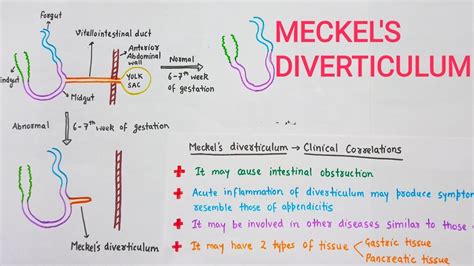 MECKEL'S
DIVERTICULUM
Forgut
Vitellointestinal duct
Anterior
Abdominal
wall
YOLK
SAC
Midgut
Normal
6-7th week
of gestation
Abnormal
6-7th week of gestation
Meckel's diverticulum
Meckel's diverticulum → Clinical Correlations
+ It may cause intestinal obstruction
+ Acute inflammation of diverticulum may produce
resemble those of appendicitis
+ It may be involved in other diseases similar to those
+ It may have 2 types of tissue
Gastric tissue
Pancreatic tissue